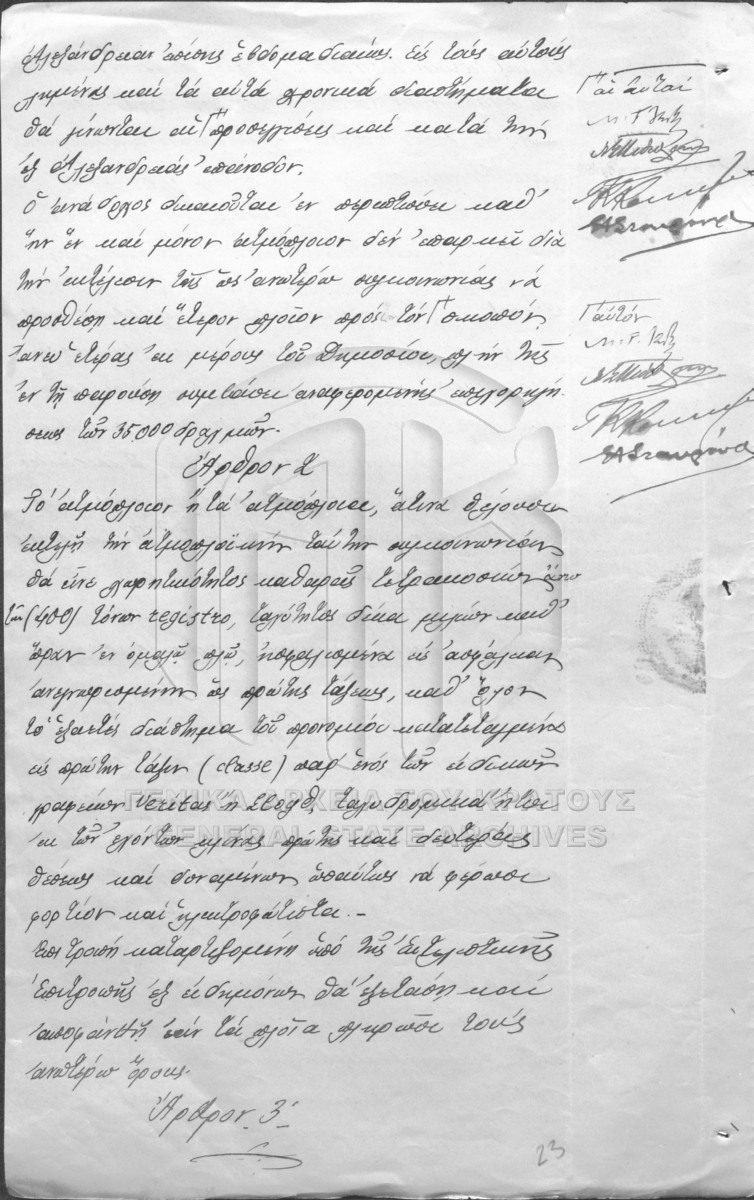 Ἀλεξάνδρειαν ἐπίσης ἑβδομαδιαίως. Εἰς τοὺς αὐτοὺς
λιμένας καὶ τὰ αὐτὰ χρονικὰ διαστήματα
θὰ γίνωνται αἱ Γ προσεγγίσεις καὶ κατὰ τὴν
ἐξ Ἀλεξανδρείας ἐπάνοδον.
Ὁ ἀνάδοχος δικαιοῦται ἐν περιπτώσει καθ'
ἣν ἓν καὶ μόνον ἀτμόπλοιον δὲν ἐπαρκεῖ διὰ
τὴν ἐκτέλεσιν τῆς ὡς ἀνωτέρω συγκοινωνίας νὰ
προσθέσῃ καὶ ἕτερον πλοῖον πρὸς τὸν Γ σκοπὸν,
ἄνευ ἑτέρας ἐκ μέρους τοῦ Δημοσίου, πλὴν τῆς
ἐν τῇ παρούσῃ συμβάσει ἀναφερομένης ἐπιχορηγή-
σεως τῶν 35.000 δραχμῶν.
Ἄρθρον 2
Τὸ ἀτμόπλοιον ἢ τὰ ἀτμόπλοια, ἅτινα θέλουσιν
ἐκτελῇ τὴν ἀτμοπλοϊκὴν ταύτην συγκοινωνίαν
θὰ εἶνε χωρητικότητος καθαρᾶς τετρακοσίων ἄνω
τῶν (400) τόνων registro, ταχύτητος δέκα μιλίων καθ'
ὥραν ἐν ὁμαλῷ πλῷ, ἠσφαλισμένα εἰς ἀσφάλειαν
ἀνεγνωρισμένην ὡς πρώτης τάξεως, καθ' ὅλον
τὸ ἑξαετὲς διάστημα τοῦ προνομίου κατατεταγμένα
εἰς πρώτην τάξιν (classe) παρ' ἑνὸς τῶν εἰδικῶν
γραφείων Veritas ἢ Λλοὺδ, ταχυδρομικὰ ἤτοι
ἐκ τῶν ἐχόντων κλίνας πρώτης καὶ δευτέρας
θέσεως καὶ δυναμένων ὡσαύτως νὰ φέρωσι
φορτίον καὶ ἠλεκτροφώτιστα.–
Ἐπιτροπὴ καταρτιζομένη ὑπὸ τῆς Ἐκτελεστικῆς
Ἐπιτροπῆς ἐξ εἰδημόνων θὰ ἐξετάσῃ καὶ
ἀποφανθῇ ἐὰν τὰ πλοῖα πληρῶσι τοὺς
ἀνωτέρω ὅρους.
Ἄρθρον 3
Γ αἱ αὐταὶ
Γ αὐτὸν
23
ΓΕΝΙΚΑ ΑΡΧΕΙΑ ΤΟΥ ΚΡΑΤΟΥΣ
GENERAL STATE ARCHIVES